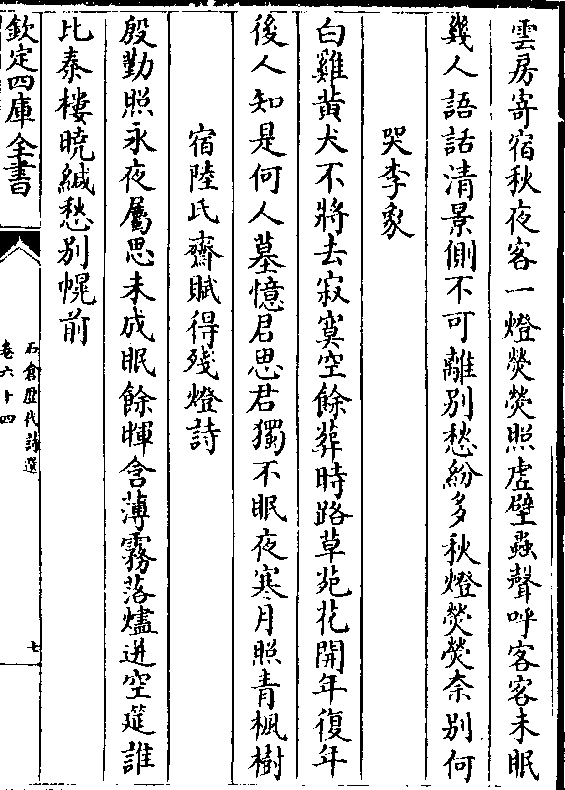 雲房寄宿秋夜客一燈熒熒照虛壁蟲聲呼客客未眠
幾人語話清景側不可離別愁紛多秋燈熒熒奈別何
哭李象
白雞黃犬不將去寂寞空餘葬時路草死花開年復年
後人知是何人墓憶君思君獨不眠夜寒月照青楓樹
宿陸氏齋賦得殘燈詩
殷勤照永夜屬思未成眠餘暉含薄霧落燼迸空筵誰
比秦樓曉緘愁別幌前
欽定四庫全書
石倉歷代詩選
卷六十四
七